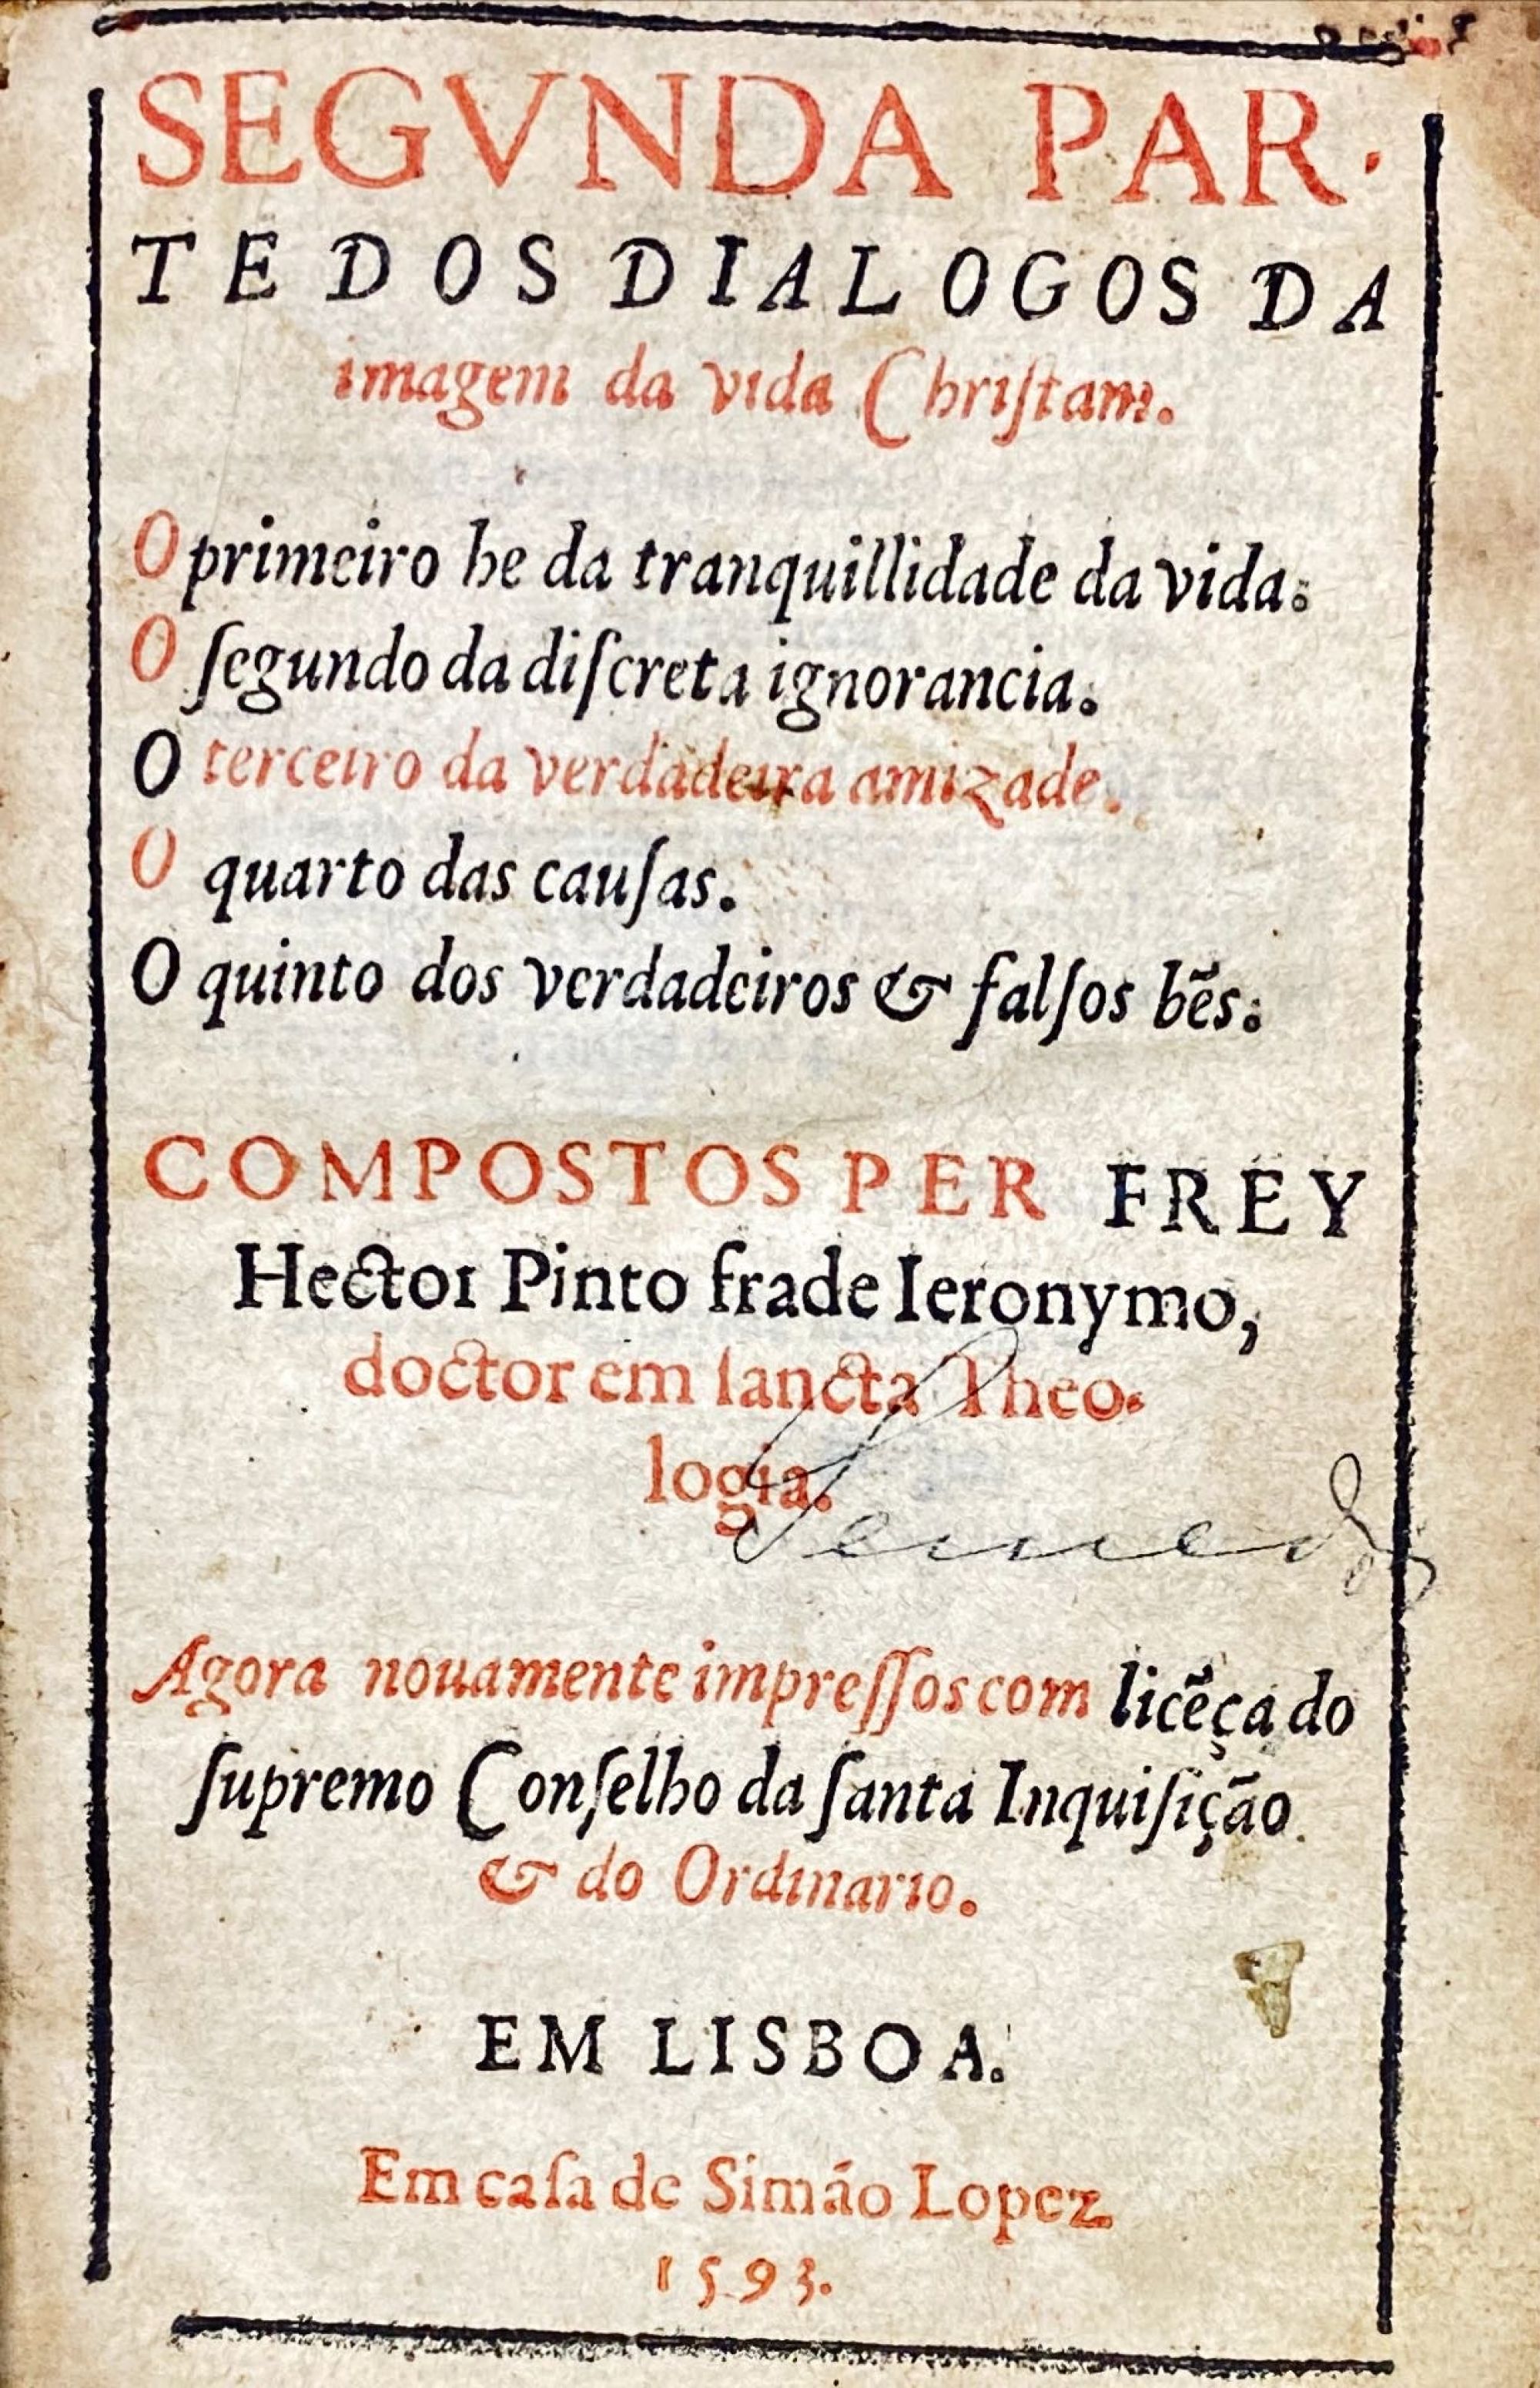 SEGVNDA PAR-
TE DOS DIALOGOS DA
imagem da vida Chriſtam.
O primeiro he da tranquillidade da vida.
O ſegundo da diſcreta ignorancia.
O terceiro da verdadeira amizade.
O quarto das cauſas.
O quinto dos verdadeiros & falſos bẽs.
COMPOSTOS PER FREY
Hector Pinto frade Ieronymo,
doctor em ſancta Theo-
logia.
Agora nouamente impreſſos com licẽça do
ſupremo Conſelho da ſanta Inquiſição
& do Ordinario.
EM LISBOA.
Em caſa de Simão Lopez
1593.